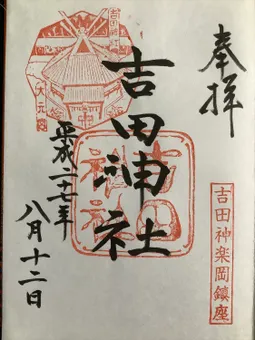 奉拝
吉田神社
平成二十七年
八月十二日
吉田神社
大元宮
吉田神社
吉田神楽岡鎮座